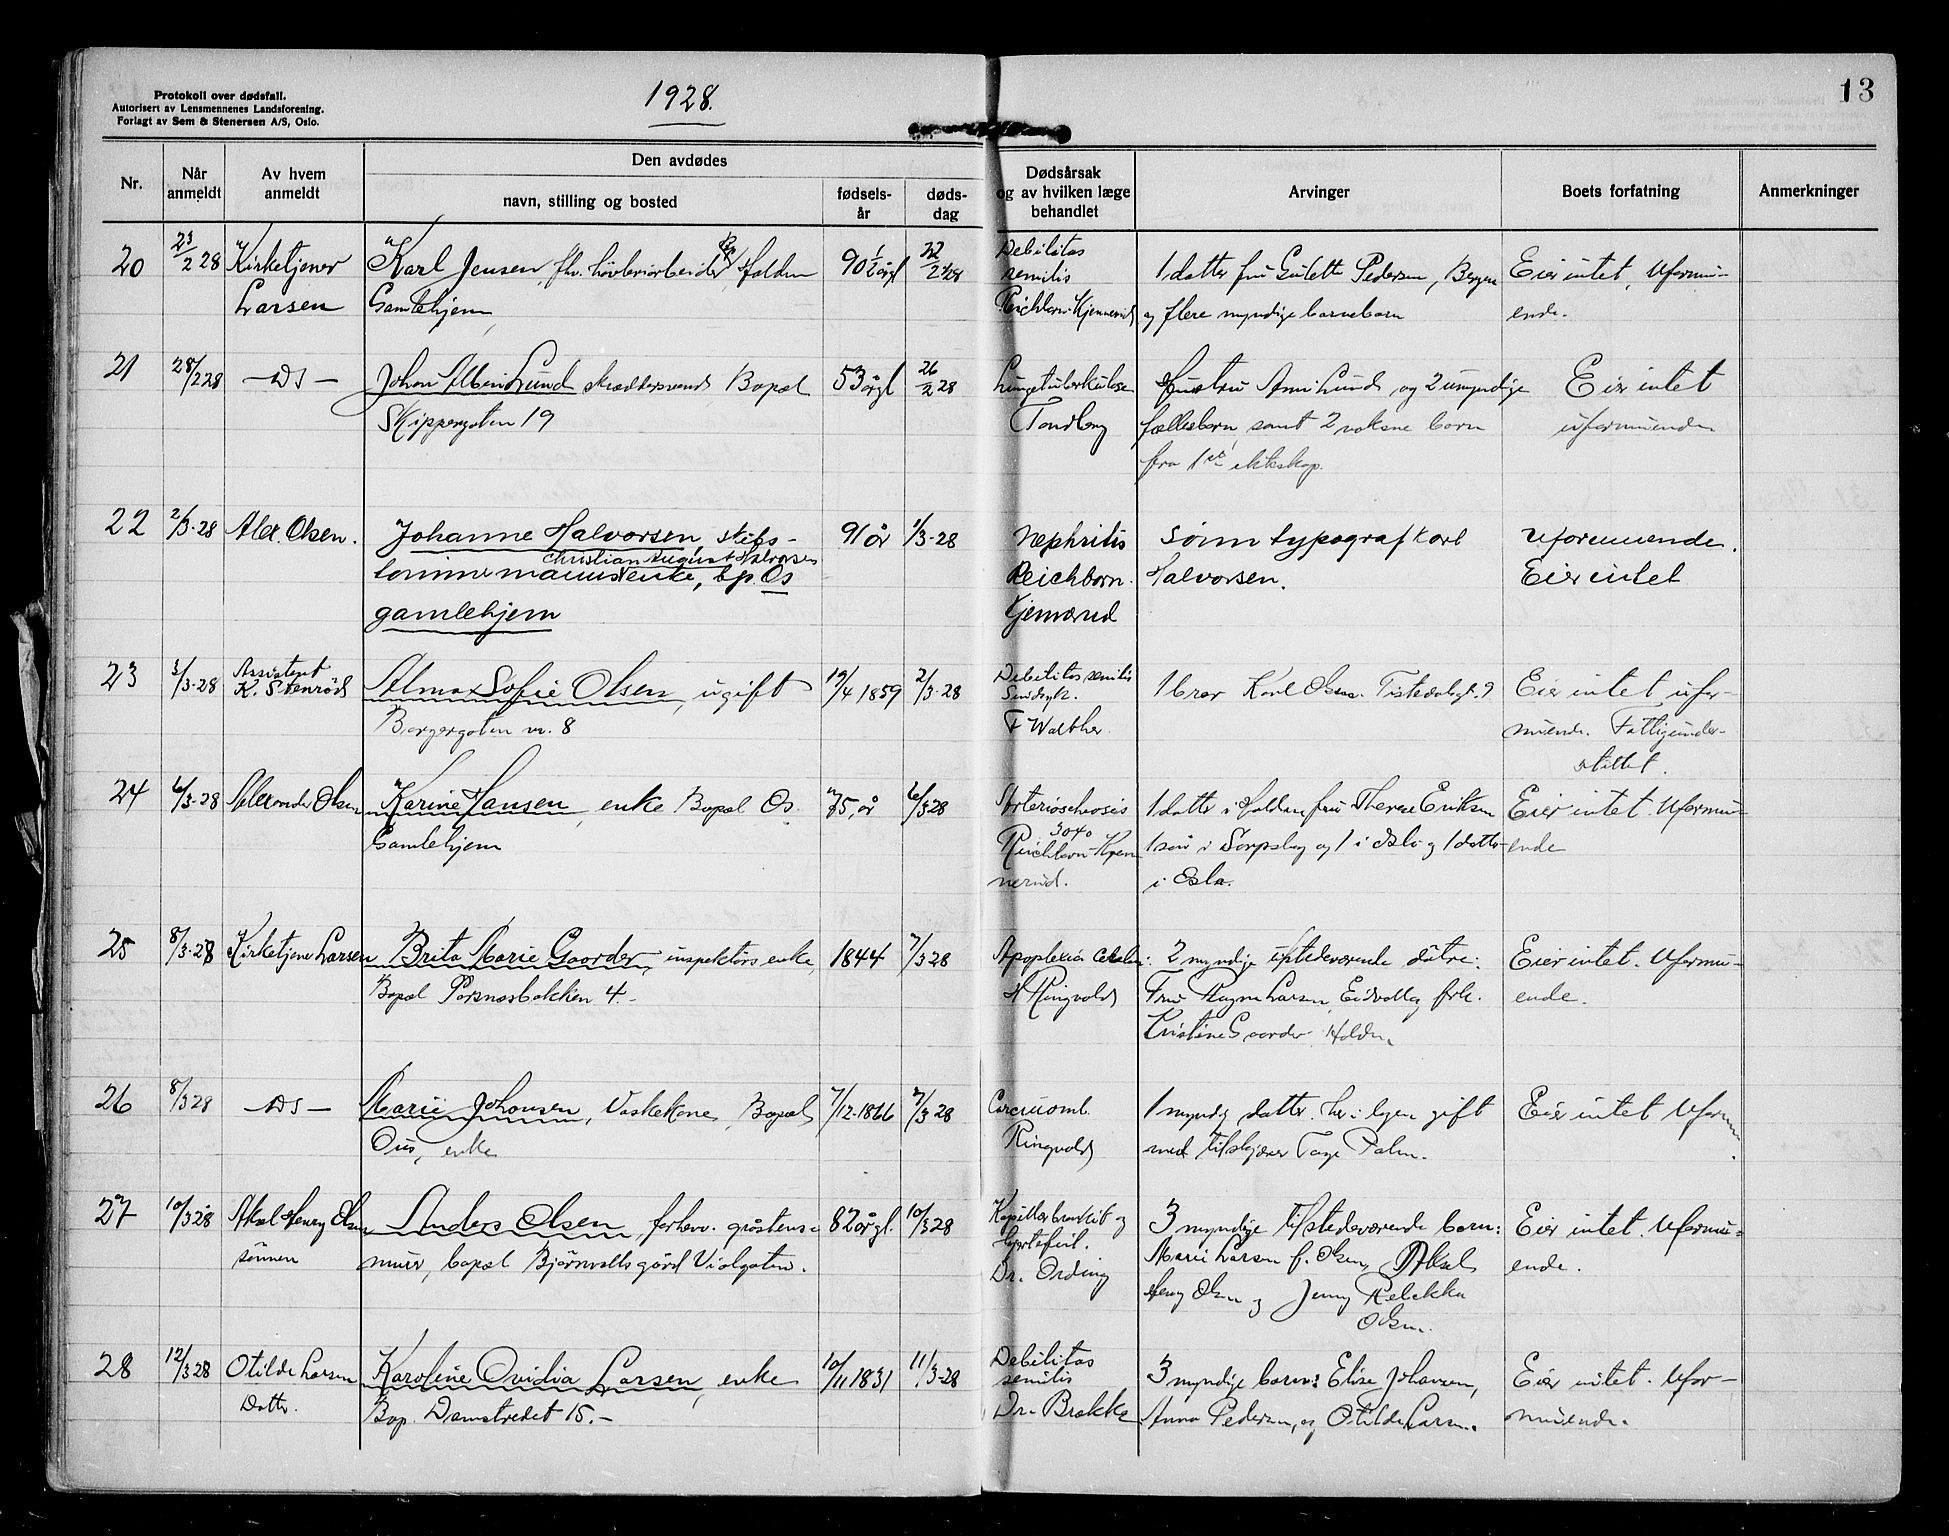 Protokoll over dødsfall.
Autorisert av Lensmennenes Landsforening.
Forlagt av Sem & Stenersen A/S, Oslo.
1928.
13
Nr.
Når anmeldt
Av hvem anmeldt
Den avdødes
navn, stilling og bosted
fødsels-år
døds-dag
Dødsårsak og av hvilken læge behandlet
Arvinger
Boets forfatning
Anmerkninger
20
23/2 28
Kirketjener
Larsen
Karl Jensen, fhv. høvleriarbeider, Halden
Gamlehjem
90 1/2 årgl
22/2 28
Debilitas
senilis
Reichborn-Kjennerud
1 datter fru Gulette Pedersen, Bergen
og flere myndige barnebarn
Eier intet, Uformu-
ende.
21
28/2 28
— Ds —
Johan Albin Lund skræddersvend Bopæl
Skippergaten 19
53 årgl
26/2 28
Lungetuberkulose
Tandberg
Hustru Anni Lund og 2 umyndige
fællesbørn, samt 2 voksne barn
fra 1ste ekteskap.
Eier intet
uformuende
22
2/3-28
Alex. Olsen.
Johanne Halvorsen, skibs-
Christian August Halvorsen
tømmermannsenke, bp. Os
gamlehjem
91 år
1/3-28
Nephritis
Reichborn.
Kjennerud
Sønn typograf Karl
Halvorsen.
Uformuende.
Eier intet
23
3/3-28
Assistent
K. Stenrød
Alma Sofie Olsen, ugift
Borgergaten nr. 8
19/4 1859
2/3-28
Debilitas senilis
Sindsyk.
F Walther
1 bror Karl Olsen. Tistedalsgt. 9
Eier intet ufor-
muende. Fattigunder-
støttet.
24
6/3-28
Alexander Olsen
Karine Hansen, enke Bopæl Os
Gamlehjem
75, år
6/3 28
Arteriosclerosis
Reichborn-Kjen
nerud.
1 datter i Halden fru Therese Eriksen
1 søn i Sarpsborg og 1 i Oslo og 1 datter
i Oslo.
Eier intet. Uformu-
ende
25
8/3-28
Kirketjener Larsen
Brita Marie Gaarder, inspektørs enke,
Bopæl Porsnesbakken 4.-
1844
7/3 28
Apoplexia
H Ringvold
2 myndige døtre:
Fru Ragna Larsen, Eidvoll og frk.
Kristine Gaarder Halden.
Eier intet. Uformu-
ende.
26
8/3 28
— Ds —
Marie Johansen, Vaskekone, Bopæl
Ous, enke
7/12-1866
7/3 28
Carcinom.
Ringvold
1 myndig datter her i byen gift
med tilskjærer Tage Palm.
Eier intet Uform
27
10/3 28
Aksel Henry Olsen
sønnen
Anders Olsen, forhenv. gråstens-
murer, bopæl Bjørnvolls gård Violgaten.
82 årgl.
10/3 28
Kapillærbronkit og
hjertefeil.
Dr. Ording
3 myndige tilstedeværende barn:
Marie Larsen f. Olsen, Aksel
Henry Olsen og Jenny Rebekka
Olsen.
Eier intet. Uformu-
ende.
28
12/3 28
Otilde Larsen
Datter.
Karoline Ovidia Larsen, enke
Bop. Damstredet 15.-
10/11 1831
11/3-28
Debilitas
senilis
Dr. Brekke
3 myndige barn: Elise Johansen,
Anna Pedersen, og Otilde Larsen.
Eier intet. Ufor-
muende.